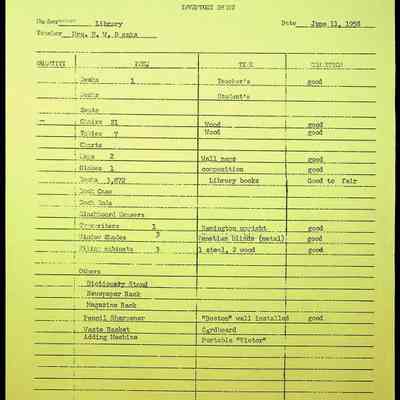 INVENTORY SHEET
Library Date June 11, 1958
Teacher Mrs. E. W.
QUANTITY ITEM TYPE CONDITION
Desks 1 Teacher's good
Desks Student's
Seats
Chairs 21 Wood good
Tables 7 Wood good
Charts
Maps 2 Wall maps good
Globes 1 composition good
Books 3,872 Library books Good to fair
Book Case
Book Ends
Blackboard Erasers
Typewriters 1 Remington upright good
Window Shades 3 Venetian blinds (metal) good
Filing cabinets 3 1 steel, 2 wood good
Others
Dictionary Stand
Newspaper Rack
Magazine Rack
Pencil Sharpener "Boston" wall installed good
Waste Basket Cardboard
Adding Machine Portable "Victor"